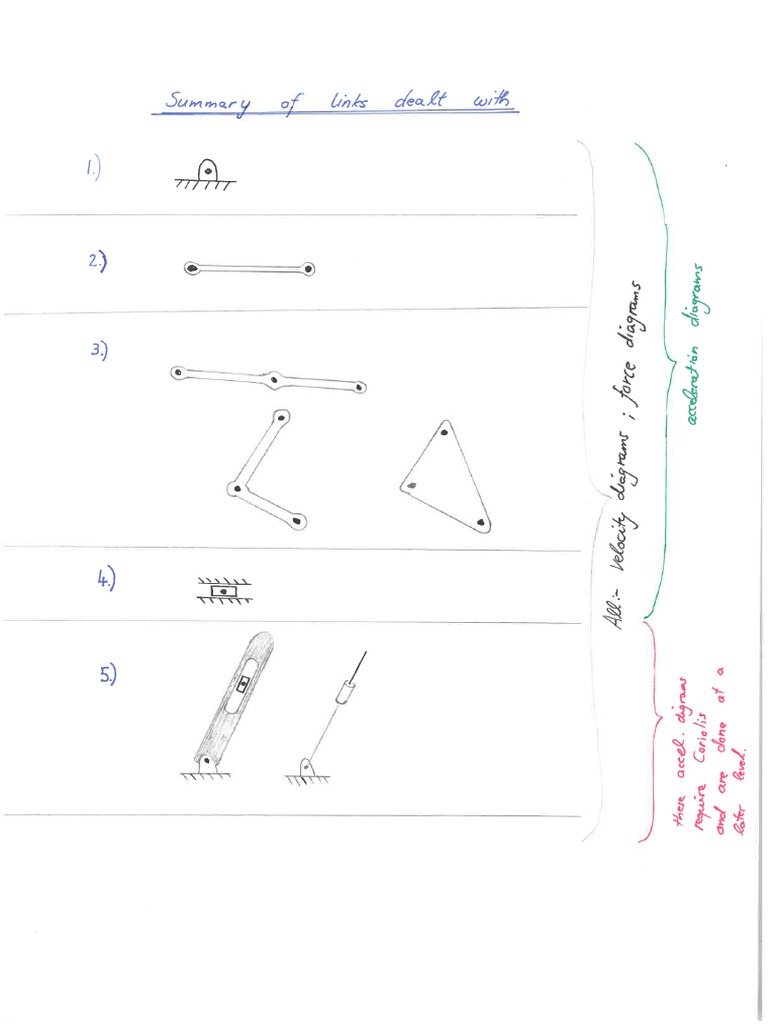 Summary of links dealt with
1.)
2.)
3.)
4.)
5.)
All:- Velocity diagrams ; force diagrams
acceleration diagrams
these accel. digrams
require Coriolis
and are done at a
later level.